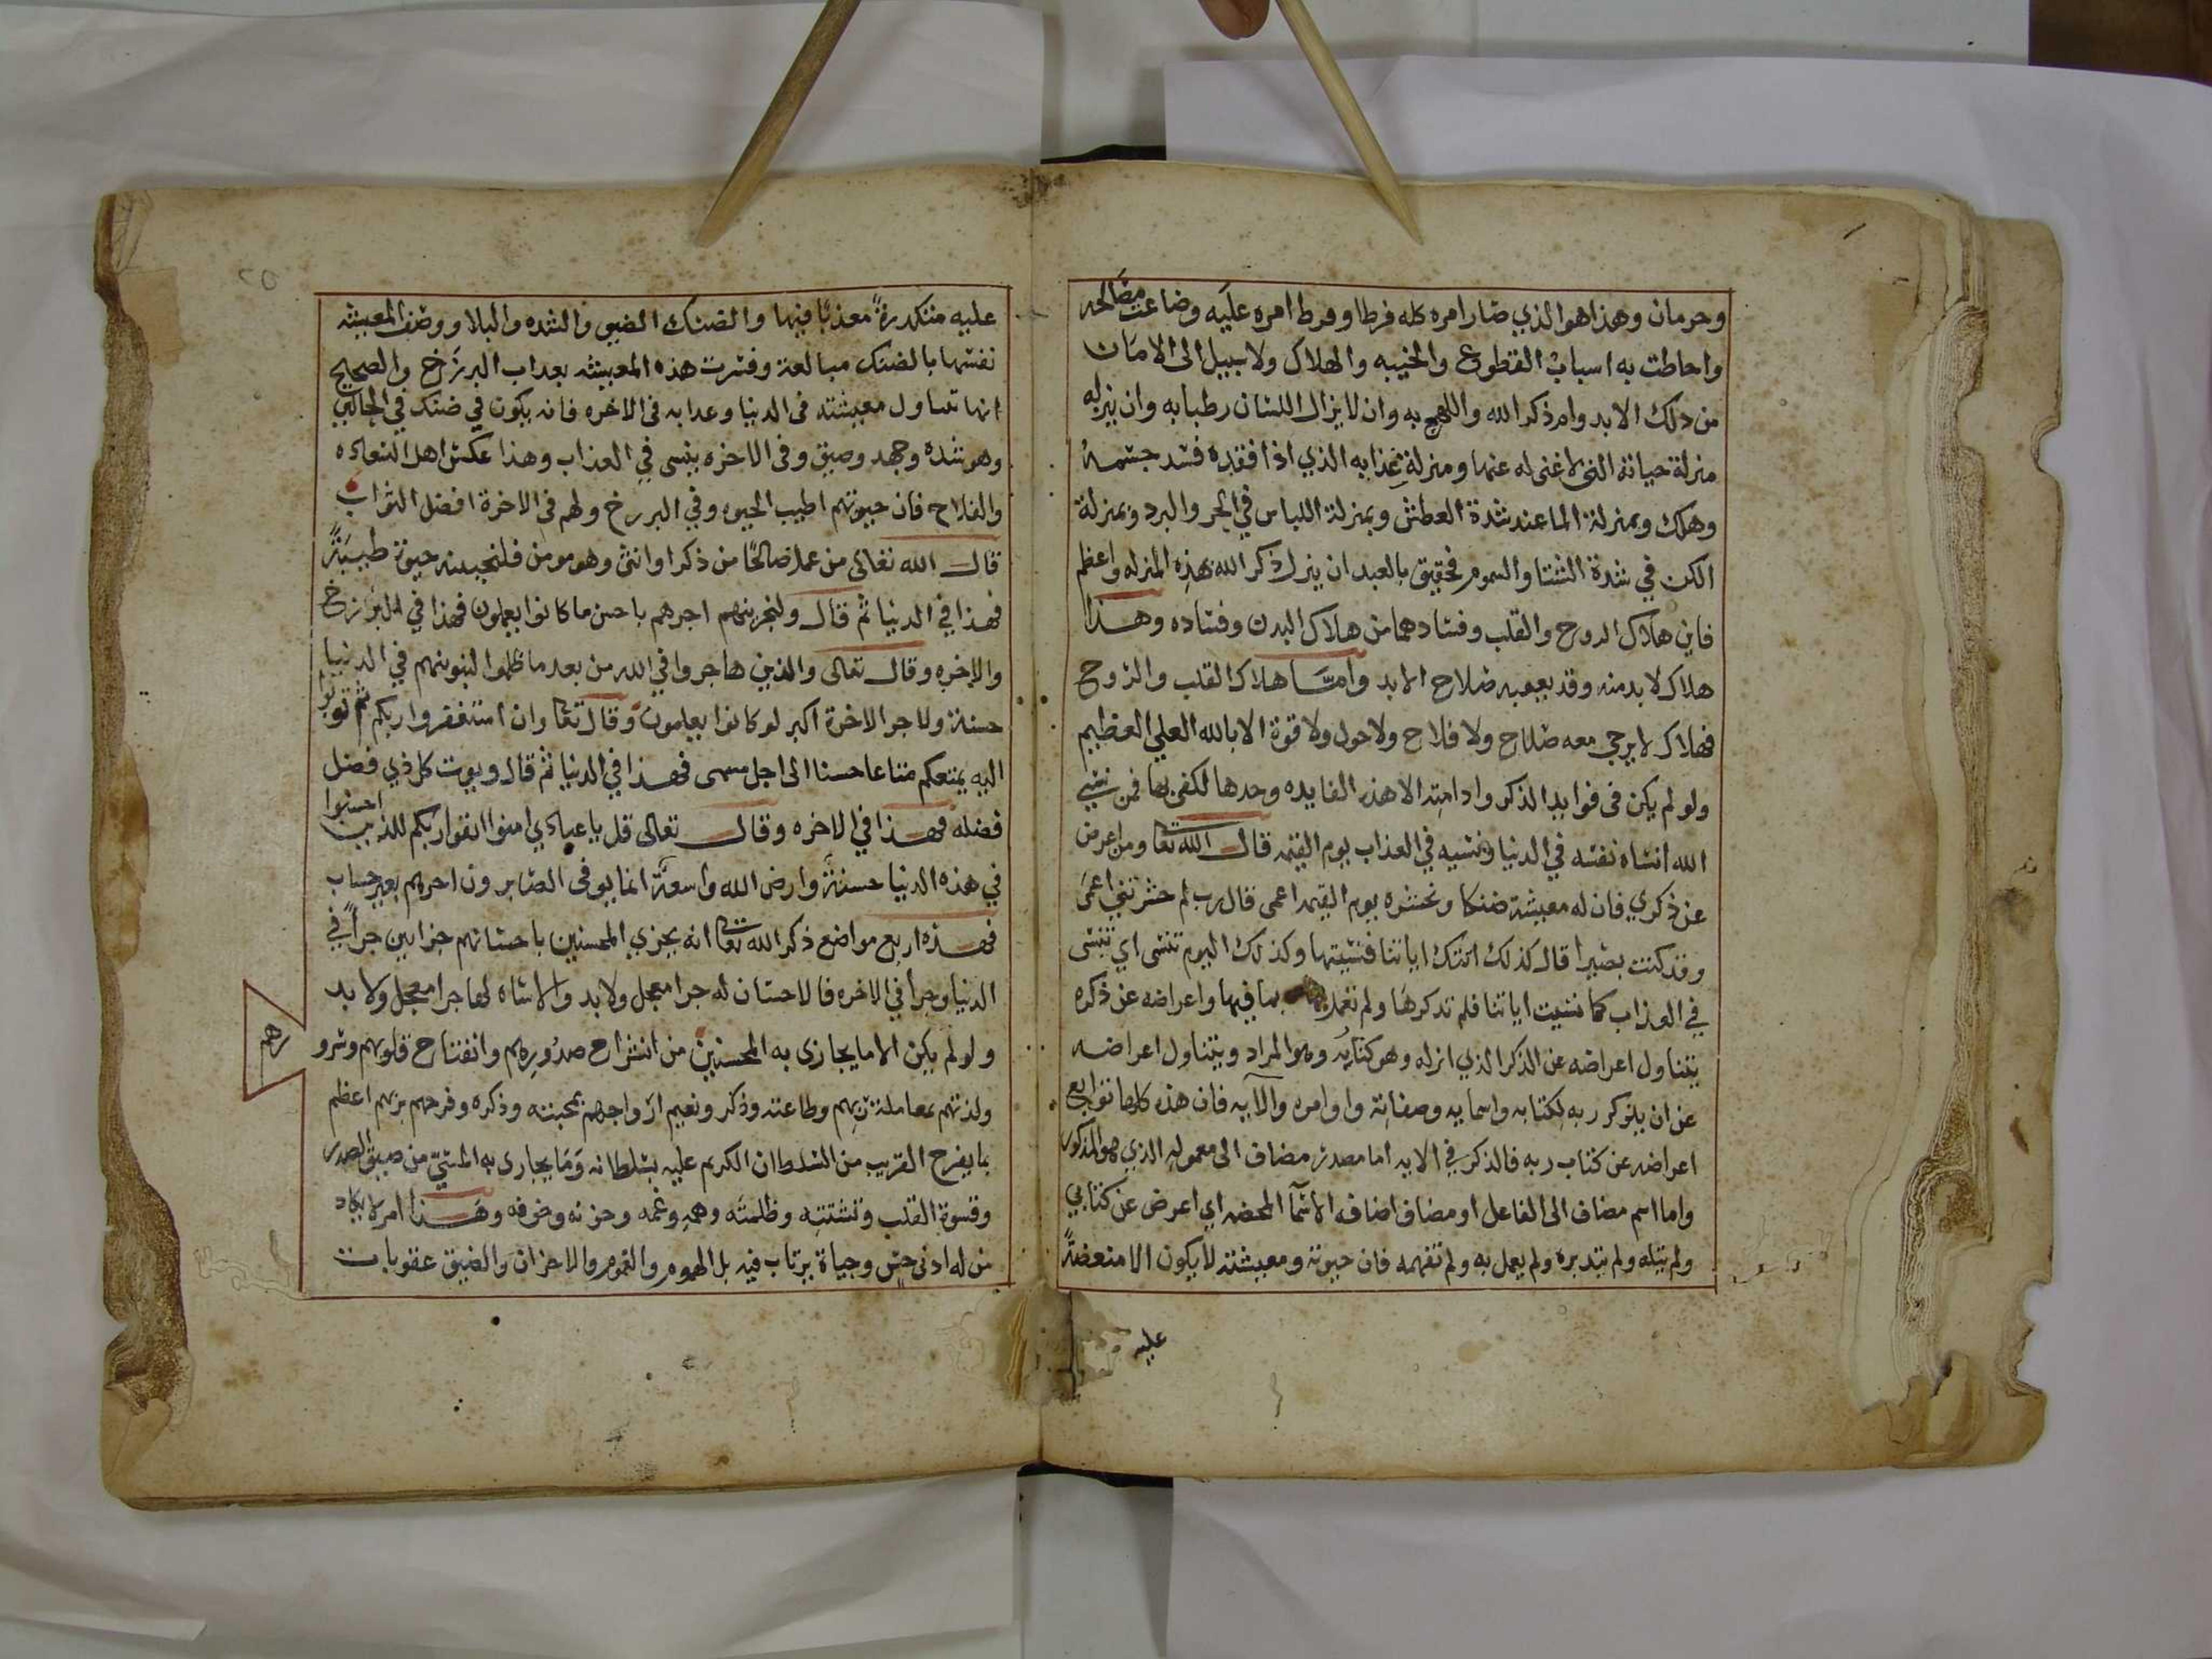 وحرمان وهذا هو الذي صار امره كله فرطا وفرط امره عليه وضاعت مصالحه
واحاطت به اسباب القطوع والخيبه والهلاك ولا سبيل الى الامان
من ذلك الا بدوام ذكر الله واللهج به وان لا يزال اللسان رطبا به وان ينزله
منزلة حياته التي لا غنى له عنها ومنزلة غذايه الذي اذا فقده فسد جسمه
وهلك وبمنزلة الما عند شدة العطش وبمنزلة اللباس في الحر والبرد وبمنزلة
الكن في شدة الشتا والسموم فحقيق بالعبد ان ينزل ذكر الله بهذه المنزله واعظم
فاين هلاك الروح والقلب وفسادهما من هلاك البدن وفساده وهذا
هلاك لا بد منه وقد يعقبه صلاح الابد وامّا هلاك القلب والروح
فهلاك لا يرجى معه صلاح ولا فلاح ولا حول ولا قوة الا بالله العلي العظيم
ولو لم يكن في فوايد الذكر وادامته الا هذه الفايده وحدها لكفى بها فمن نسي
الله انساه نفسه في الدنيا ونسيه في العذاب يوم القيمه قال الله تعا ومن اعرض
عن ذكري فان له معيشة ضنكا ونحشره يوم القيمه اعمى قال رب لم حشرتني اعمى
وقد كنت بصيرا قال كذلك اتتك اياتنا فنسيتها وكذلك اليوم تنسى اي تنسى
في العذاب كما نسيت اياتنا فلم تذكرها ولم تعمل بما فيها واعراضه عن ذكره
يتناول اعراضه عن الذكر الذي انزله وهو كتابه وهو المراد ويتناول اعراضه
عن ان يذكر ربه بكتابه واسمايه وصفاته واوامره والآيه فان هذه كلها توابع
اعراضه عن كتاب ربه فالذكر في الايه اما مصدر مضاف الى معموله الذي هو المذكور
واما اسم مضاف الى الفاعل او مضاف اضافه الاسما المحضه اي اعرض عن كتابي
ولم يتله ولم يتدبره ولم يعمل به ولم تفهمه فان حيوته ومعيشته لا يكون الا منغصةً
عليه
٢٥
عليه متكدرةً معذبًا فيها والضنك الضيق والشده والبلا ووصف المعيشه
نفسها بالضنك مبالغة وفسرت هذه المعيشه بعذاب البرزخ والصحيح
انها تتناول معيشته في الدنيا وعذابه في الاخره فانه يكون في ضنك في الحالين
وهو شده وجهد وضيق وفي الاخره ينسى في العذاب وهذا عكس اهل السعاده
والفلاح فان حيوتهم اطيب الحيوه وفي البرزخ ولهم في الاخرة افضل الثواب
قال الله تعالى من عمل صالحًا من ذكر او انثى وهو مومن فلنحيينه حيوة طيبةً
فهذا في الدنيا ثم قال ولنجزينهم اجرهم باحسن ما كانوا يعملون فهذا في البرزخ
والاخره وقال تعالى والذين هاجروا في الله من بعد ما ظلموا لنبوينهم في الدنيا
حسنة ولاجر الاخرة اكبر لو كانوا يعلمون وقال تعا وان استغفروا ربكم ثم توبوا
اليه يمتعكم متاعا حسنا الى اجل مسمى فهذا في الدنيا ثم قال ويوت كل ذي فضل
فضله فهذا في الاخره وقال تعالى قل يا عبادي امنوا اتقوا ربكم للذين احسنوا
في هذه الدنيا حسنةً وارض الله واسعةً انما يوفى الصابرون اجرهم بغير حساب
فهذه اربع مواضع ذكر الله تعا انه يجزي المحسنين باحسانهم جزاين جزاً في
الدنيا وجزا في الاخره فالاحسان له جزا معجل ولا بد والاساه لها جزا معجل ولا بد
ولو لم يكن الا ما يجازى به المحسنين من انشراح صدورهم وانفتاح قلوبهم وسرو
رهم
ولذتهم بمعاملة ربهم وطاعته وذكره ونعيم ارواحهم بمحبته وذكره وفرحهم بربهم اعظم
ما يفرح القريب من السلطان الكريم عليه بسلطانه وَمَا يجازى به المسيّ من ضيق الصدر
وقسوة القلب وتشتته وظلمته وهمه وغمه وحزنه وخوفه وهذا امر لا يكاد
من له ادنى حس وحياة يرتاب فيه بل الهموم والغموم والاحزان والضيق عقوبات